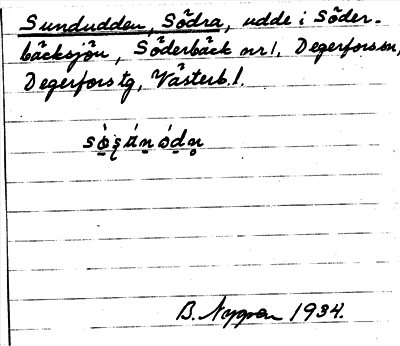 Sundudden, Södra, udde i Söder-
bäcksjön, Söderbäck nr 1, Degerfors sn,
Degerfors tg, Västerb. l.
B. Nygren 1934.